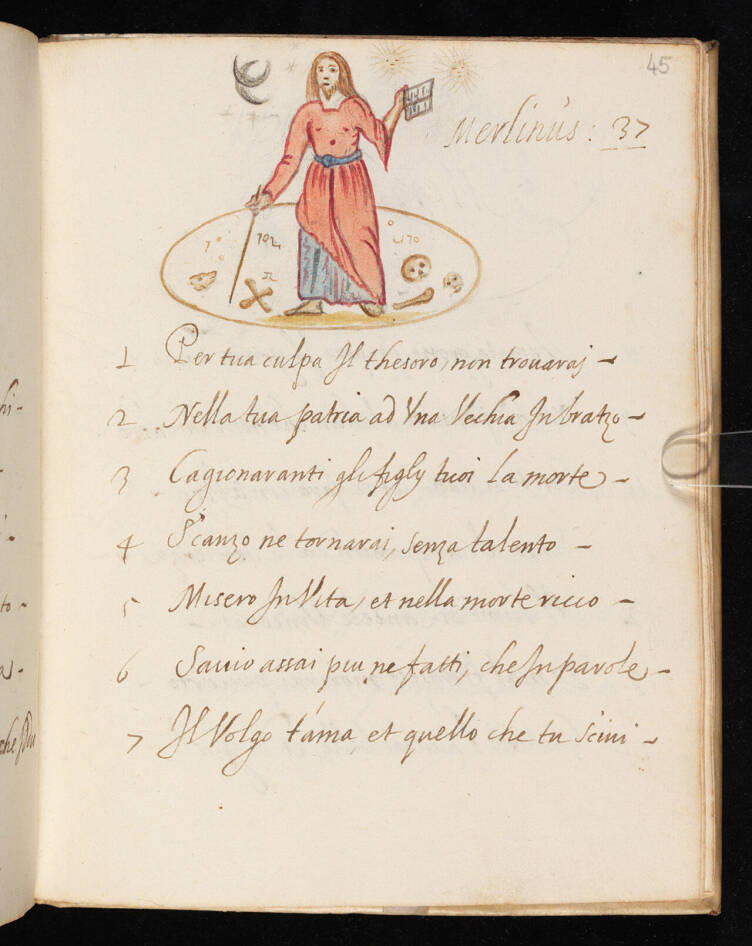 45
Merlinus: 37
1 Per tua culpa Il thesoro, non trovaraj -
2 Nella tua patria ad Una Vechia In bratzo -
3 Cagionaranti gli figly tuoi la morte -
4 Scanzo ne tornarai, senza talento -
5 Misero In Vita, et nella morte ricco -
6 Savio assai piu ne fatti, che In parole -
7 Il Volgo t'ama et quello che tu scivi -